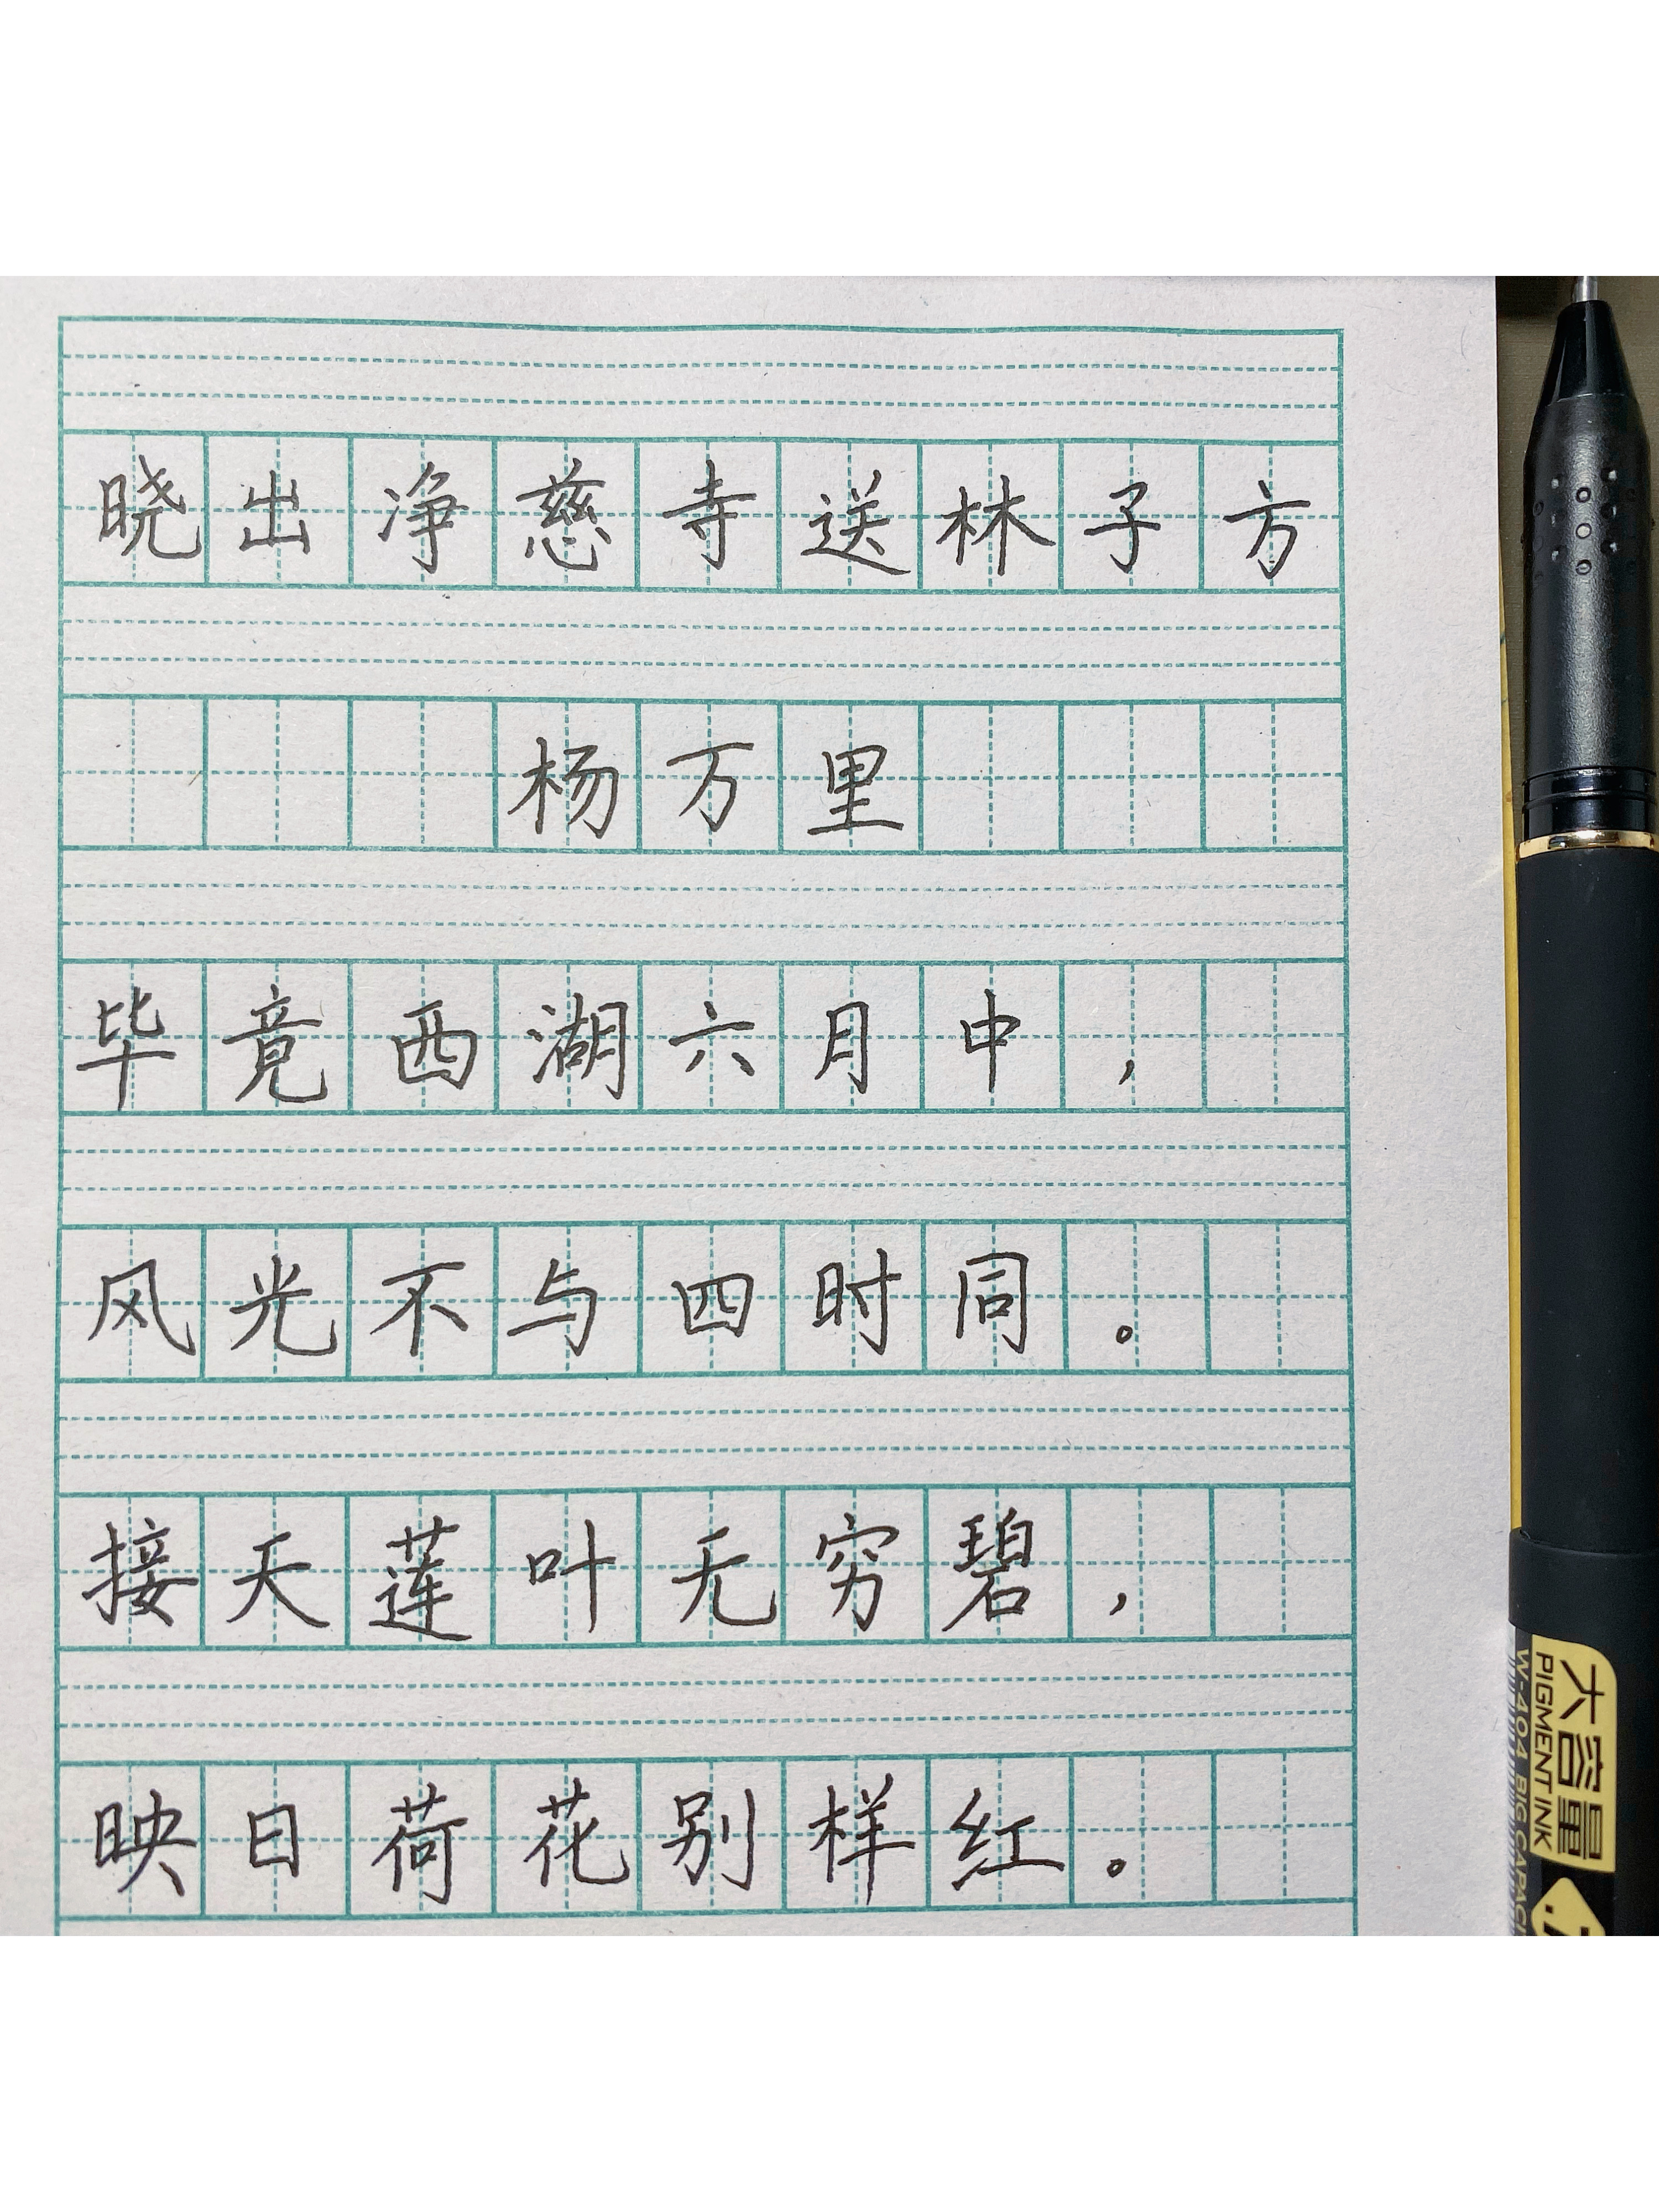 晓出净慈寺送林子方
杨万里
毕竟西湖六月中，
风光不与四时同。
接天莲叶无穷碧，
映日荷花别样红。
大容量
PIGMENT INK
W-4404 BIG CAPACI